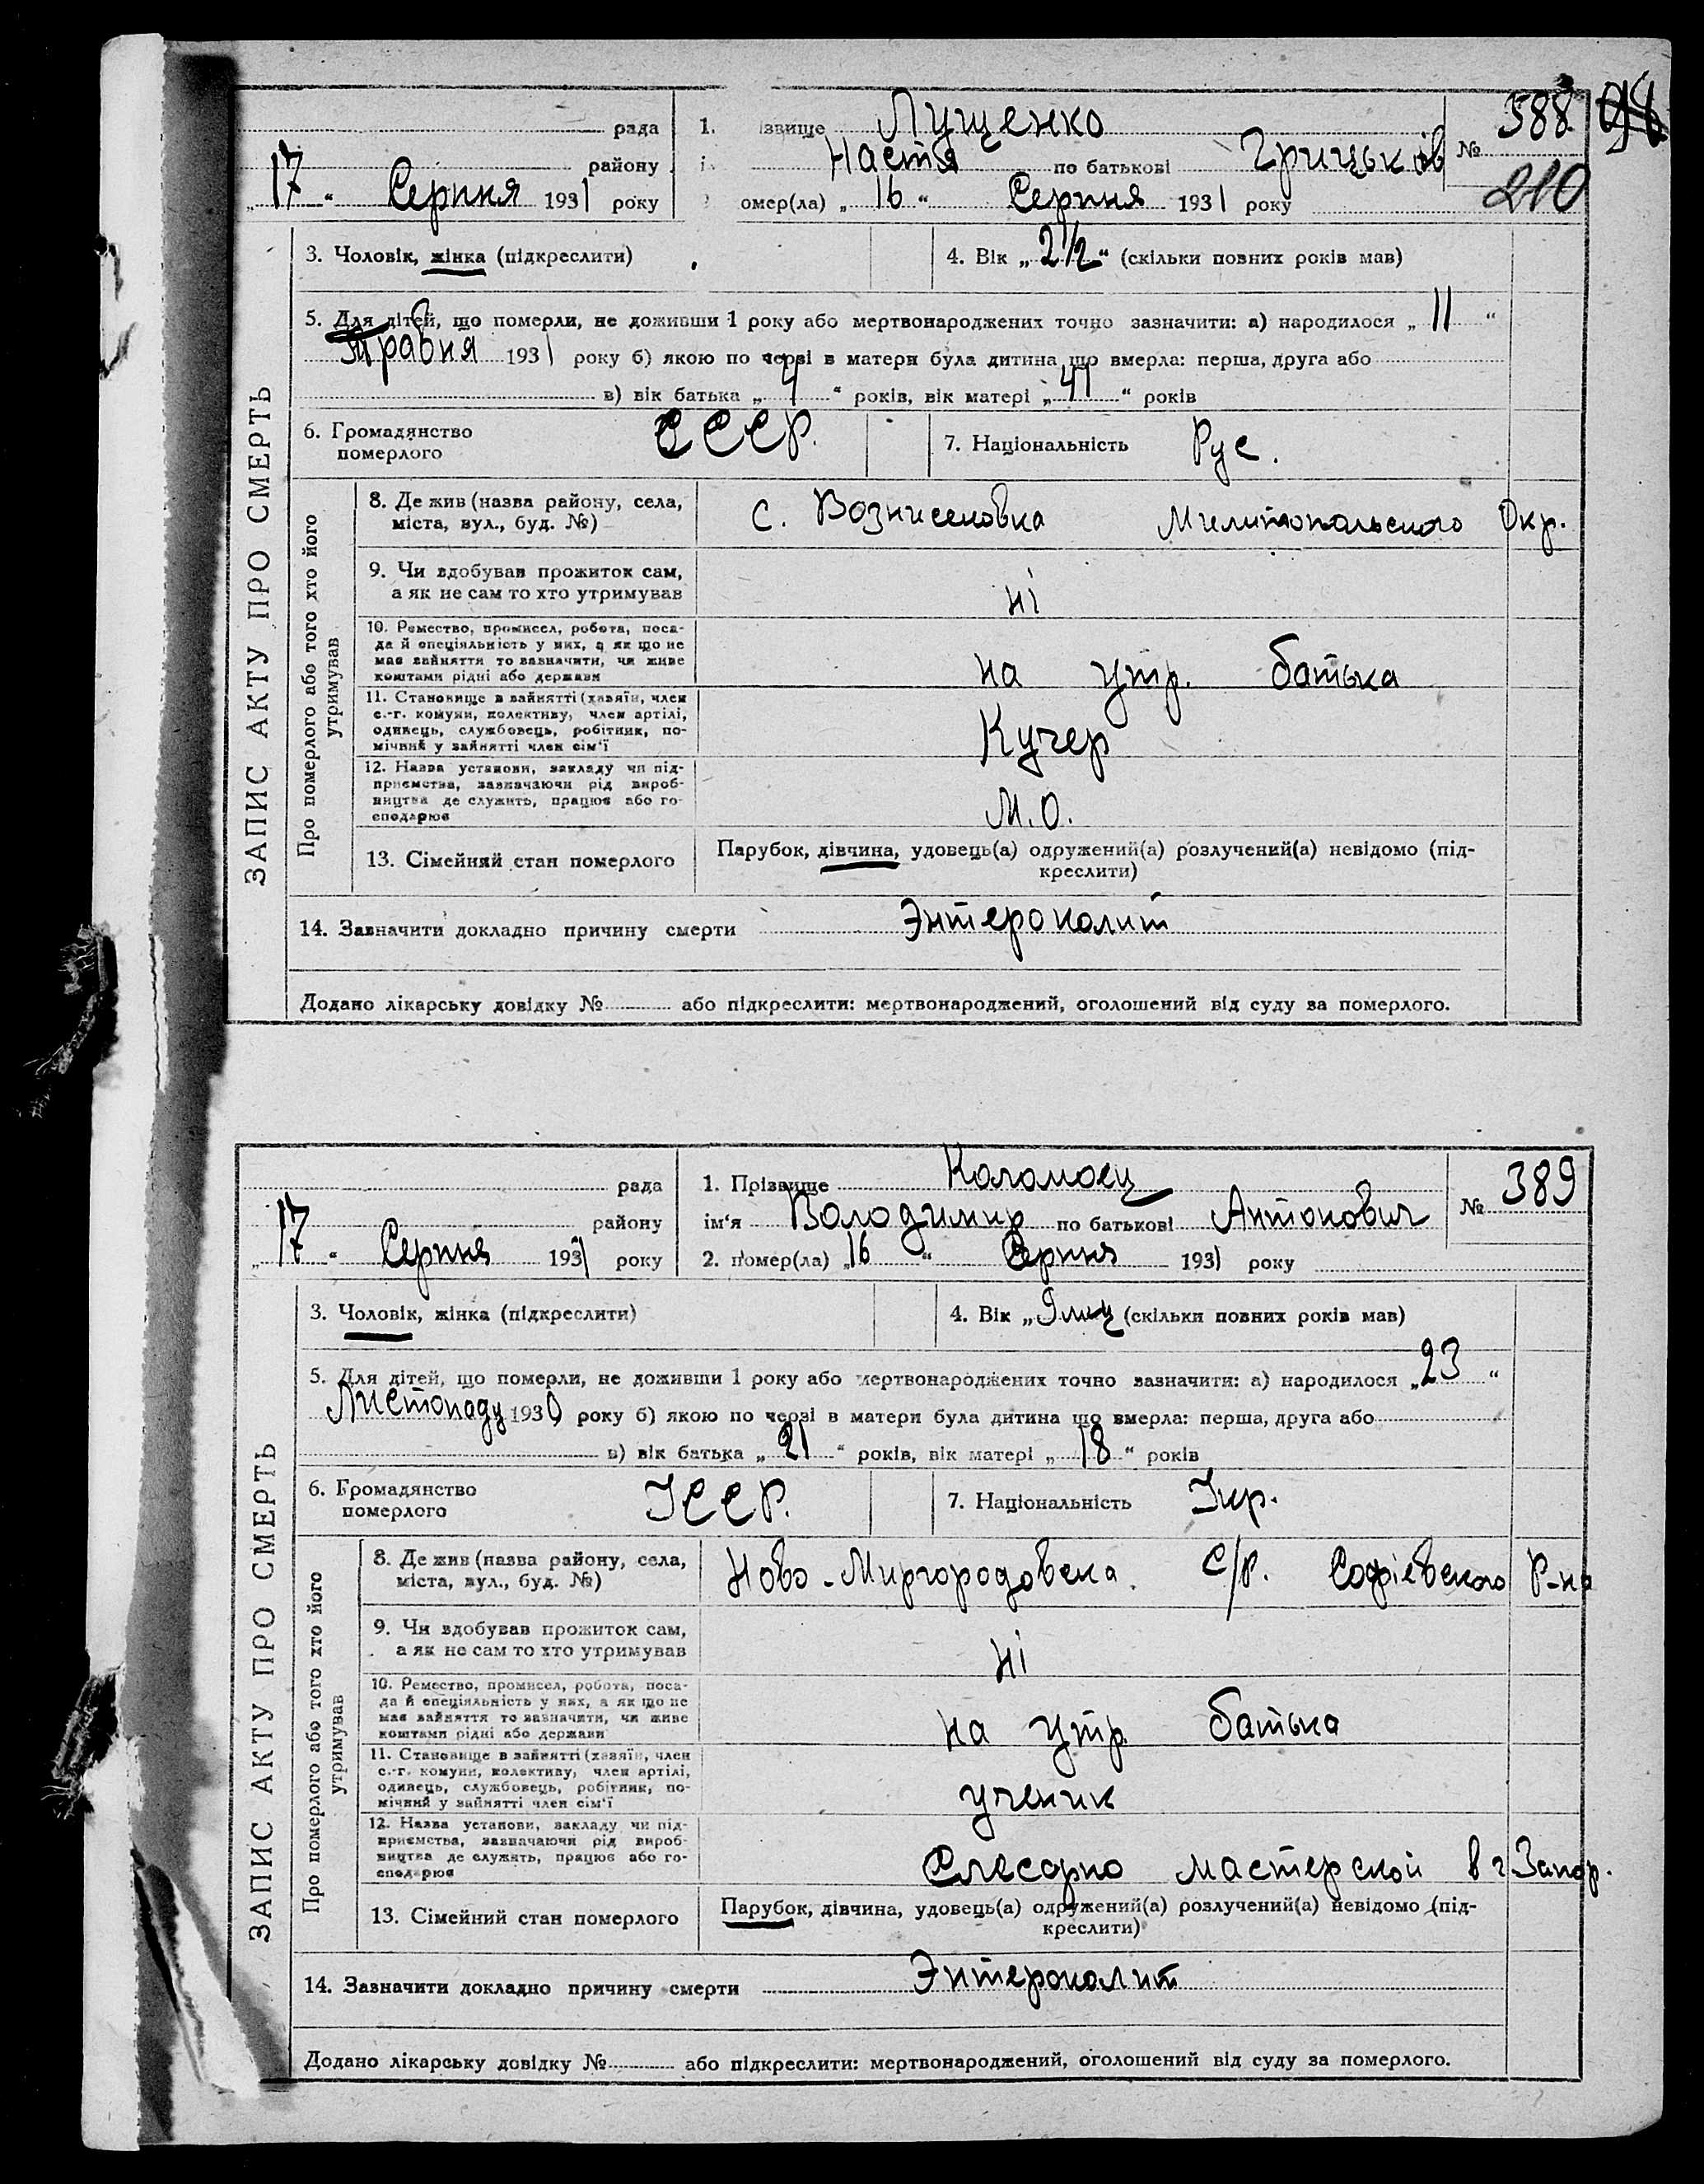 рада
району
„17“ Серпня 1931 року
1. ізвище Лущенко
Настя по батькові Грицьків
омер(ла) „16“ Серпня 1931 року
№ 388
210
3. Чоловік, жінка (підкреслити)
4. Вік „2½“ (скільки повних років мав)
5. Для дітей, що померли, не доживши 1 року або мертвонароджених точно зазначити: а) народилося „11“
Травня 1931 року б) якою по черзі в матери була дитина що вмерла: перша, друга або
в) вік батька „4“ років, вік матері „41“ років
6. Громадянство
померлого
СССР.
7. Національність Рус.
ЗАПИС АКТУ ПРО СМЕРТЬ
Про померлого або того хто його
утримував
8. Де жив (назва району, села,
міста, вул., буд. №)
с. Вознисеновка Милитопольского Окр.
9. Чи здобував прожиток сам,
а як не сам то хто утримував
ні
10. Ремество, промисел, робота, поса-
да й спеціяльність у них, а як що не
має зайняття то зазначити, чи живе
коштами рідні або держави
на утр. батька
11. Становище в зайнятті (хазяїн, член
с.-г. комуни, колективу, член артілі,
одинець, службовець, робітник, по-
мічний у зайнятті член сім'ї
Кучер
12. Назва установи, закладу чи під-
приємства, зазначаючи рід вироб-
ництва де служить, працює або го-
сподарює
М.О.
13. Сімейний стан померлого
Парубок, дівчина, удовець(а) одружений(а) розлучений(а) невідомо (під-
креслити)
14. Зазначити докладно причину смерти Энтероколит
Додано лікарську довідку № або підкреслити: мертвонароджений, оголошений від суду за померлого.
рада
району
„17“ Серпня 1931 року
1. Прізвище Коломоец
ім'я Володимир по батькові Антонович
2. помер(ла) „16“ Серпня 1931 року
№ 389
3. Чоловік, жінка (підкреслити)
4. Вік „9 миц (скільки повних років мав)
5. Для дітей, що померли, не доживши 1 року або мертвонароджених точно зазначити: а) народилося „23“
Листопаду 1930 року б) якою по черзі в матери була дитина що вмерла: перша, друга або
в) вік батька „21“ років, вік матері „18“ років
6. Громадянство
померлого
УССР.
7. Національність Укр.
ЗАПИС АКТУ ПРО СМЕРТЬ
Про померлого або того хто його
утримував
8. Де жив (назва району, села,
міста, вул., буд. №)
Ново-Миргородовска С/Р. Софіевского Р-на
9. Чи здобував прожиток сам,
а як не сам то хто утримував
ні
10. Ремество, промисел, робота, поса-
да й спеціяльність у них, а як що не
має зайняття то зазначити, чи живе
коштами рідні або держави
на утр. батька
11. Становище в зайнятті (хазяїн, член
с.-г. комуни, колективу, член артілі,
одинець, службовець, робітник, по-
мічний у зайнятті член сім'ї
ученик
12. Назва установи, закладу чи під-
приємства, зазначаючи рід вироб-
ництва де служить, працює або го-
сподарює
Слесарно мастерской в г Запор.
13. Сімейний стан померлого
Парубок, дівчина, удовець(а) одружений(а) розлучений(а) невідомо (під-
креслити)
14. Зазначити докладно причину смерти Энтероколит
Додано лікарську довідку № або підкреслити: мертвонароджений, оголошений від суду за померлого.